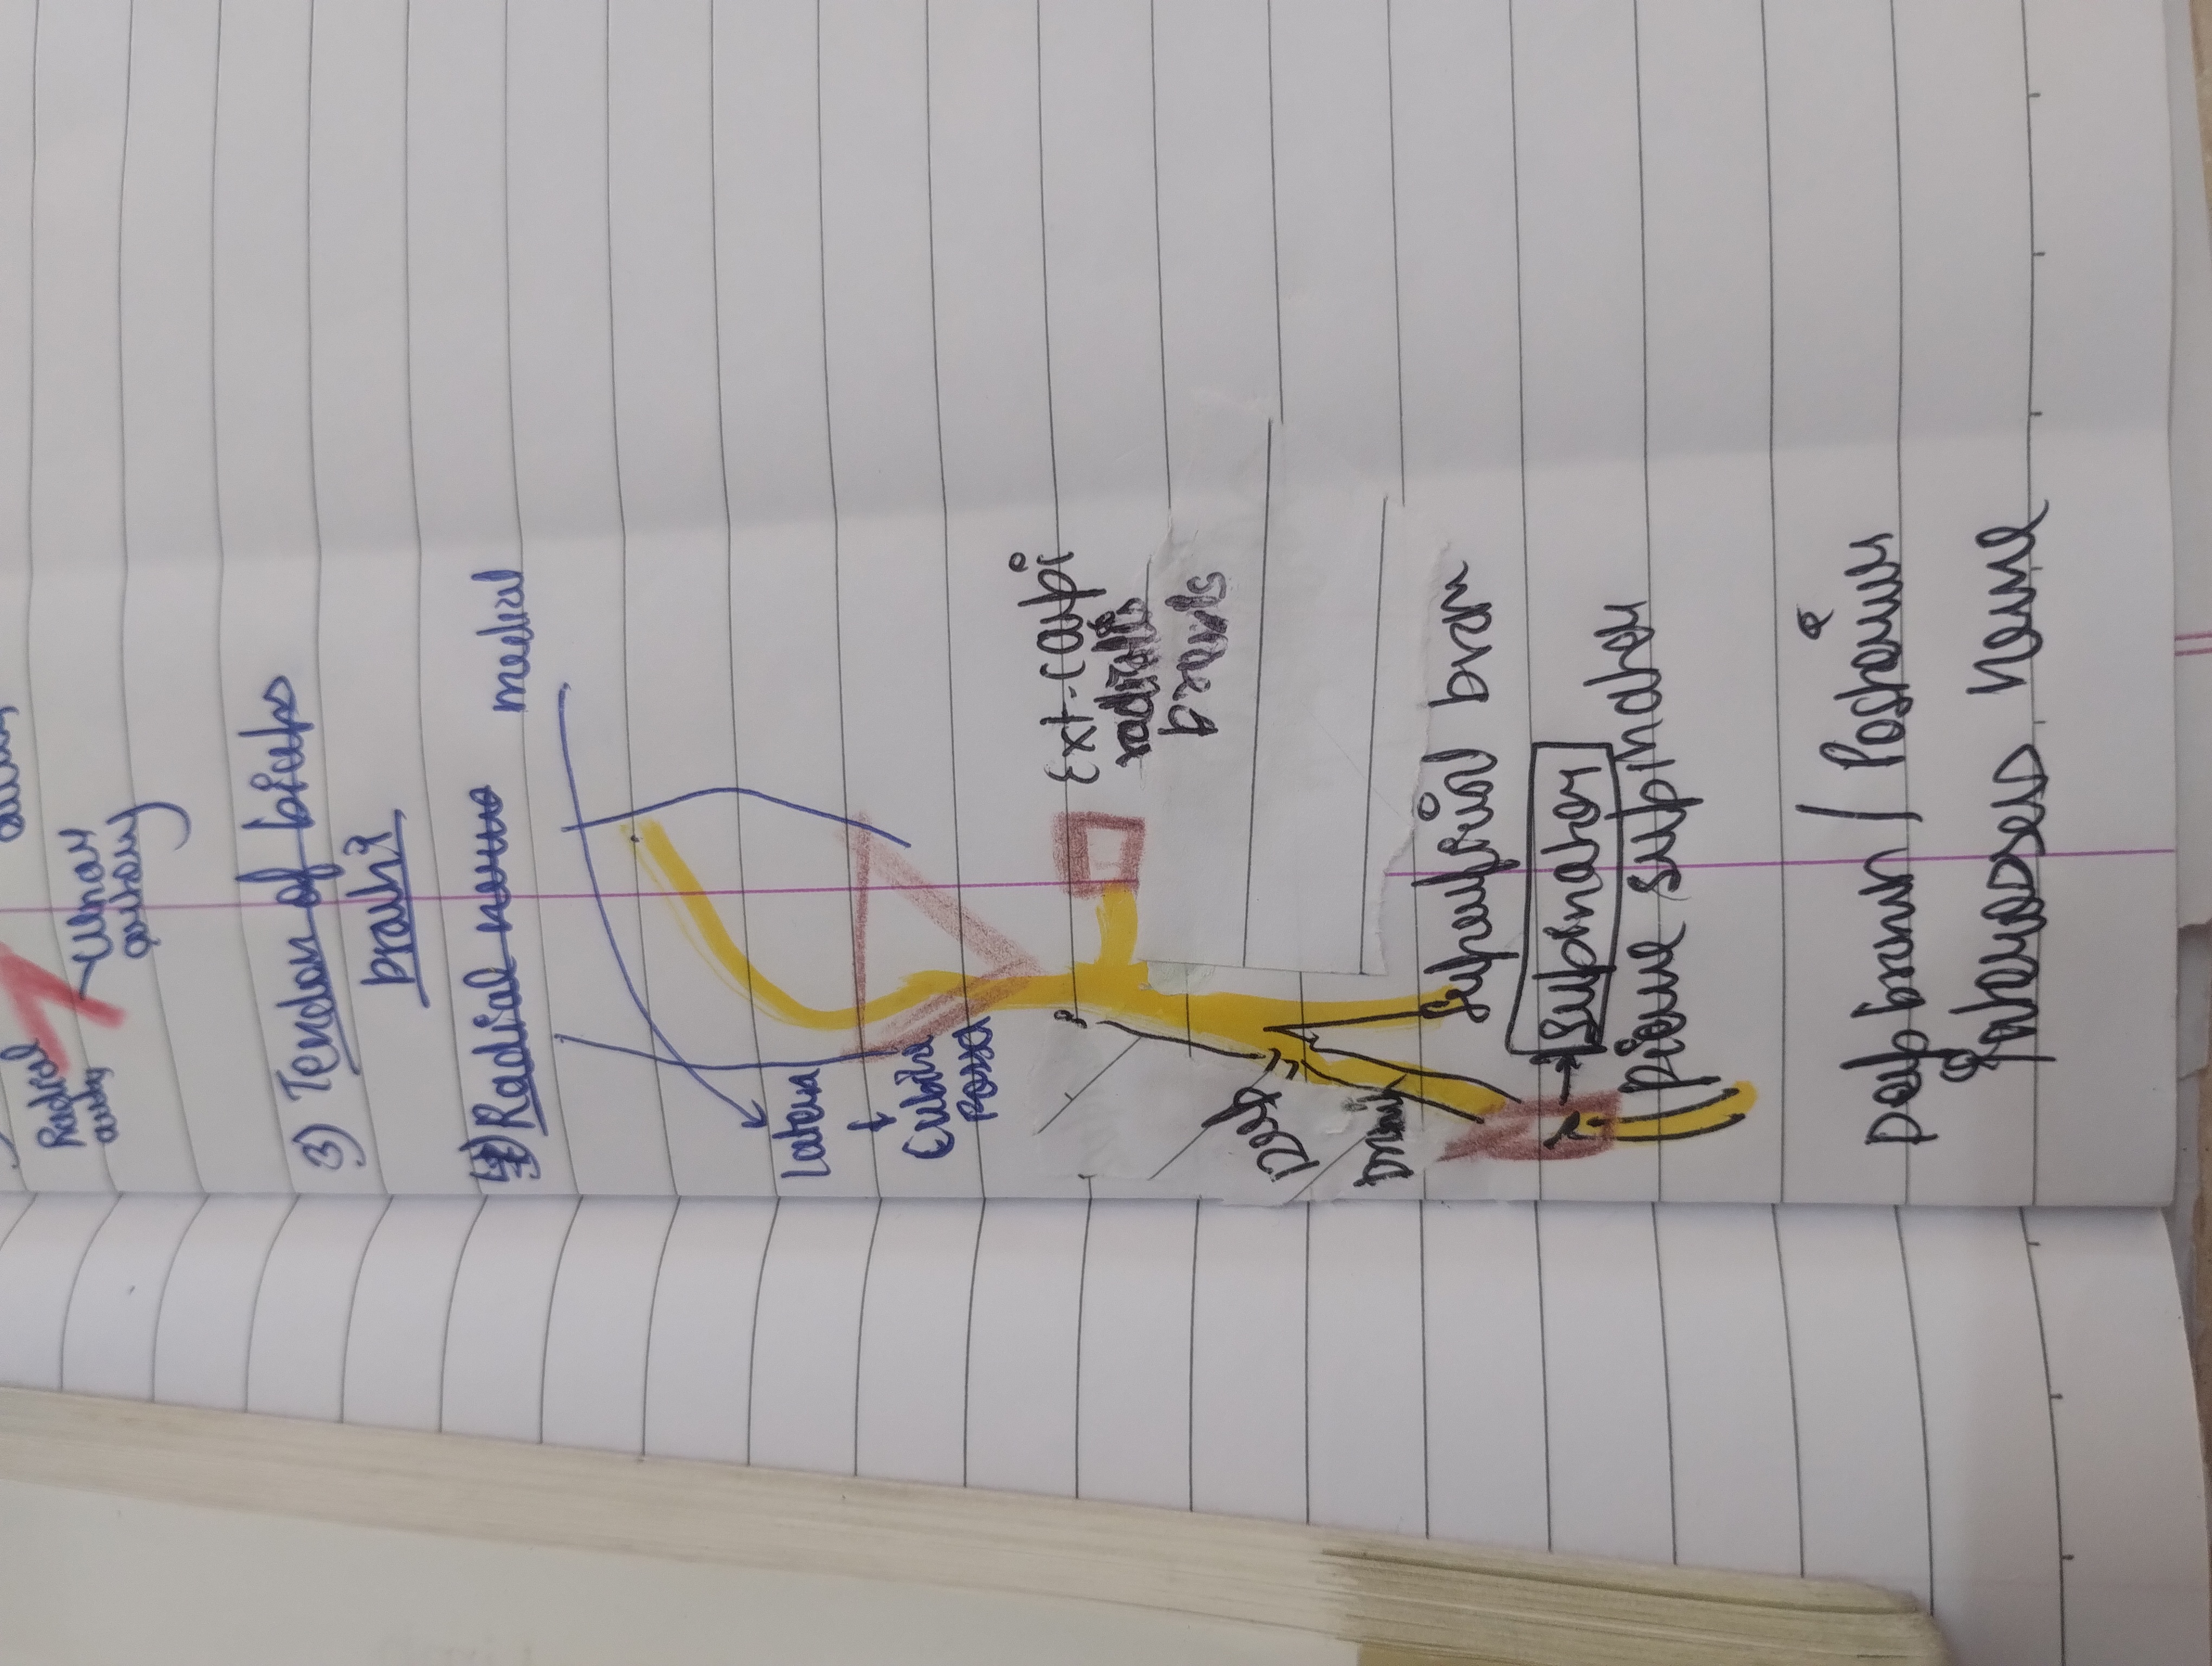 Radial
artery
Ulnar
artery
3) Tendon of biceps
brachi
4) Radial nerve
medial
lateral
Cubital
Fossa
Ext. carpi
radialis
Brevis
Deep
Branch
Superficial bran
Supinator
Pierce supinator
Deep branch / Posterior
interosseous nerve